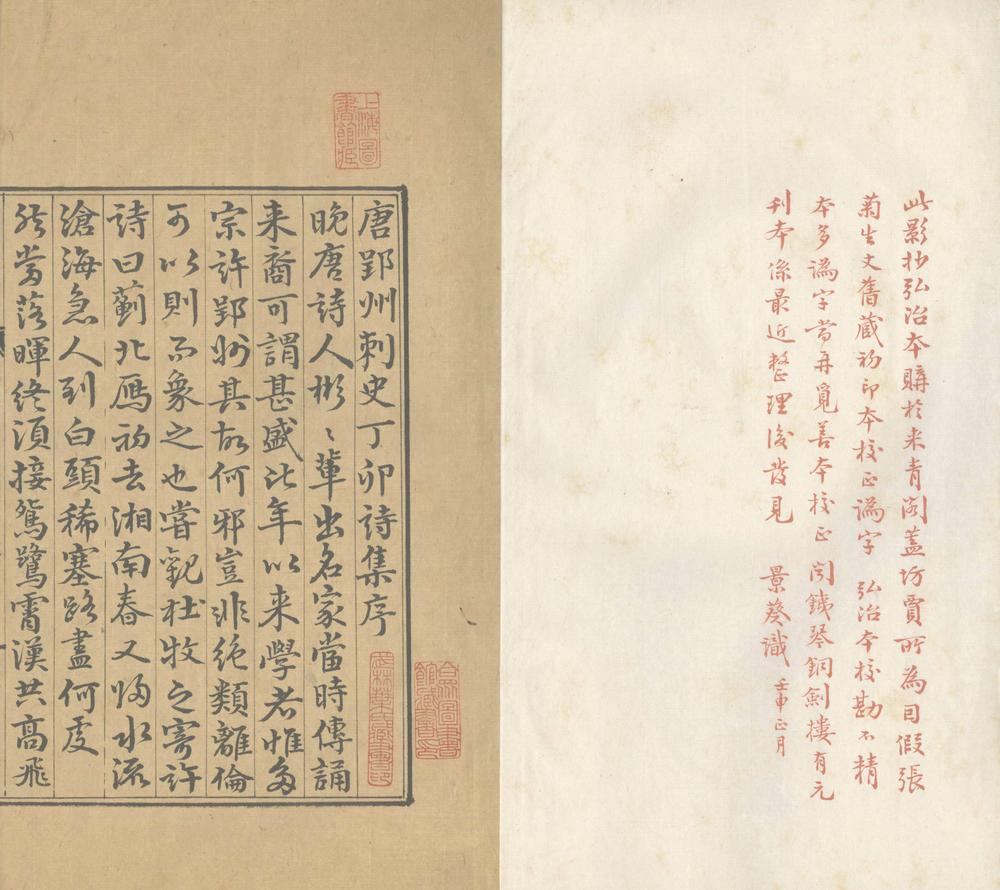 此影抄弘治本購於来青阁蓋坊賈所為因假張
菊生丈舊蔵初印本校正譌字 弘治本校勘不精
本多譌字當再覓善本校正 闵鉄琴銅劍樓有元
刊本係最近整理後發見 景葵識 壬申正月
上海圖
書館藏
唐郢州刺史丁卯詩集序
晚唐詩人彬〻輩出名家當時傳誦
来裔可謂甚盛比年以来學者惟多
宗許郢州其故何邪豈非絶類離倫
可以則而象之也嘗觀杜牧之寄許
詩曰薊北鴈初去湘南春又歸水流
滄海急人到白頭稀塞路盡何處
能當落暉終須接鴛鷺霄漢共髙飛
武林葉氏藏書印
合眾圖書
館藏書印